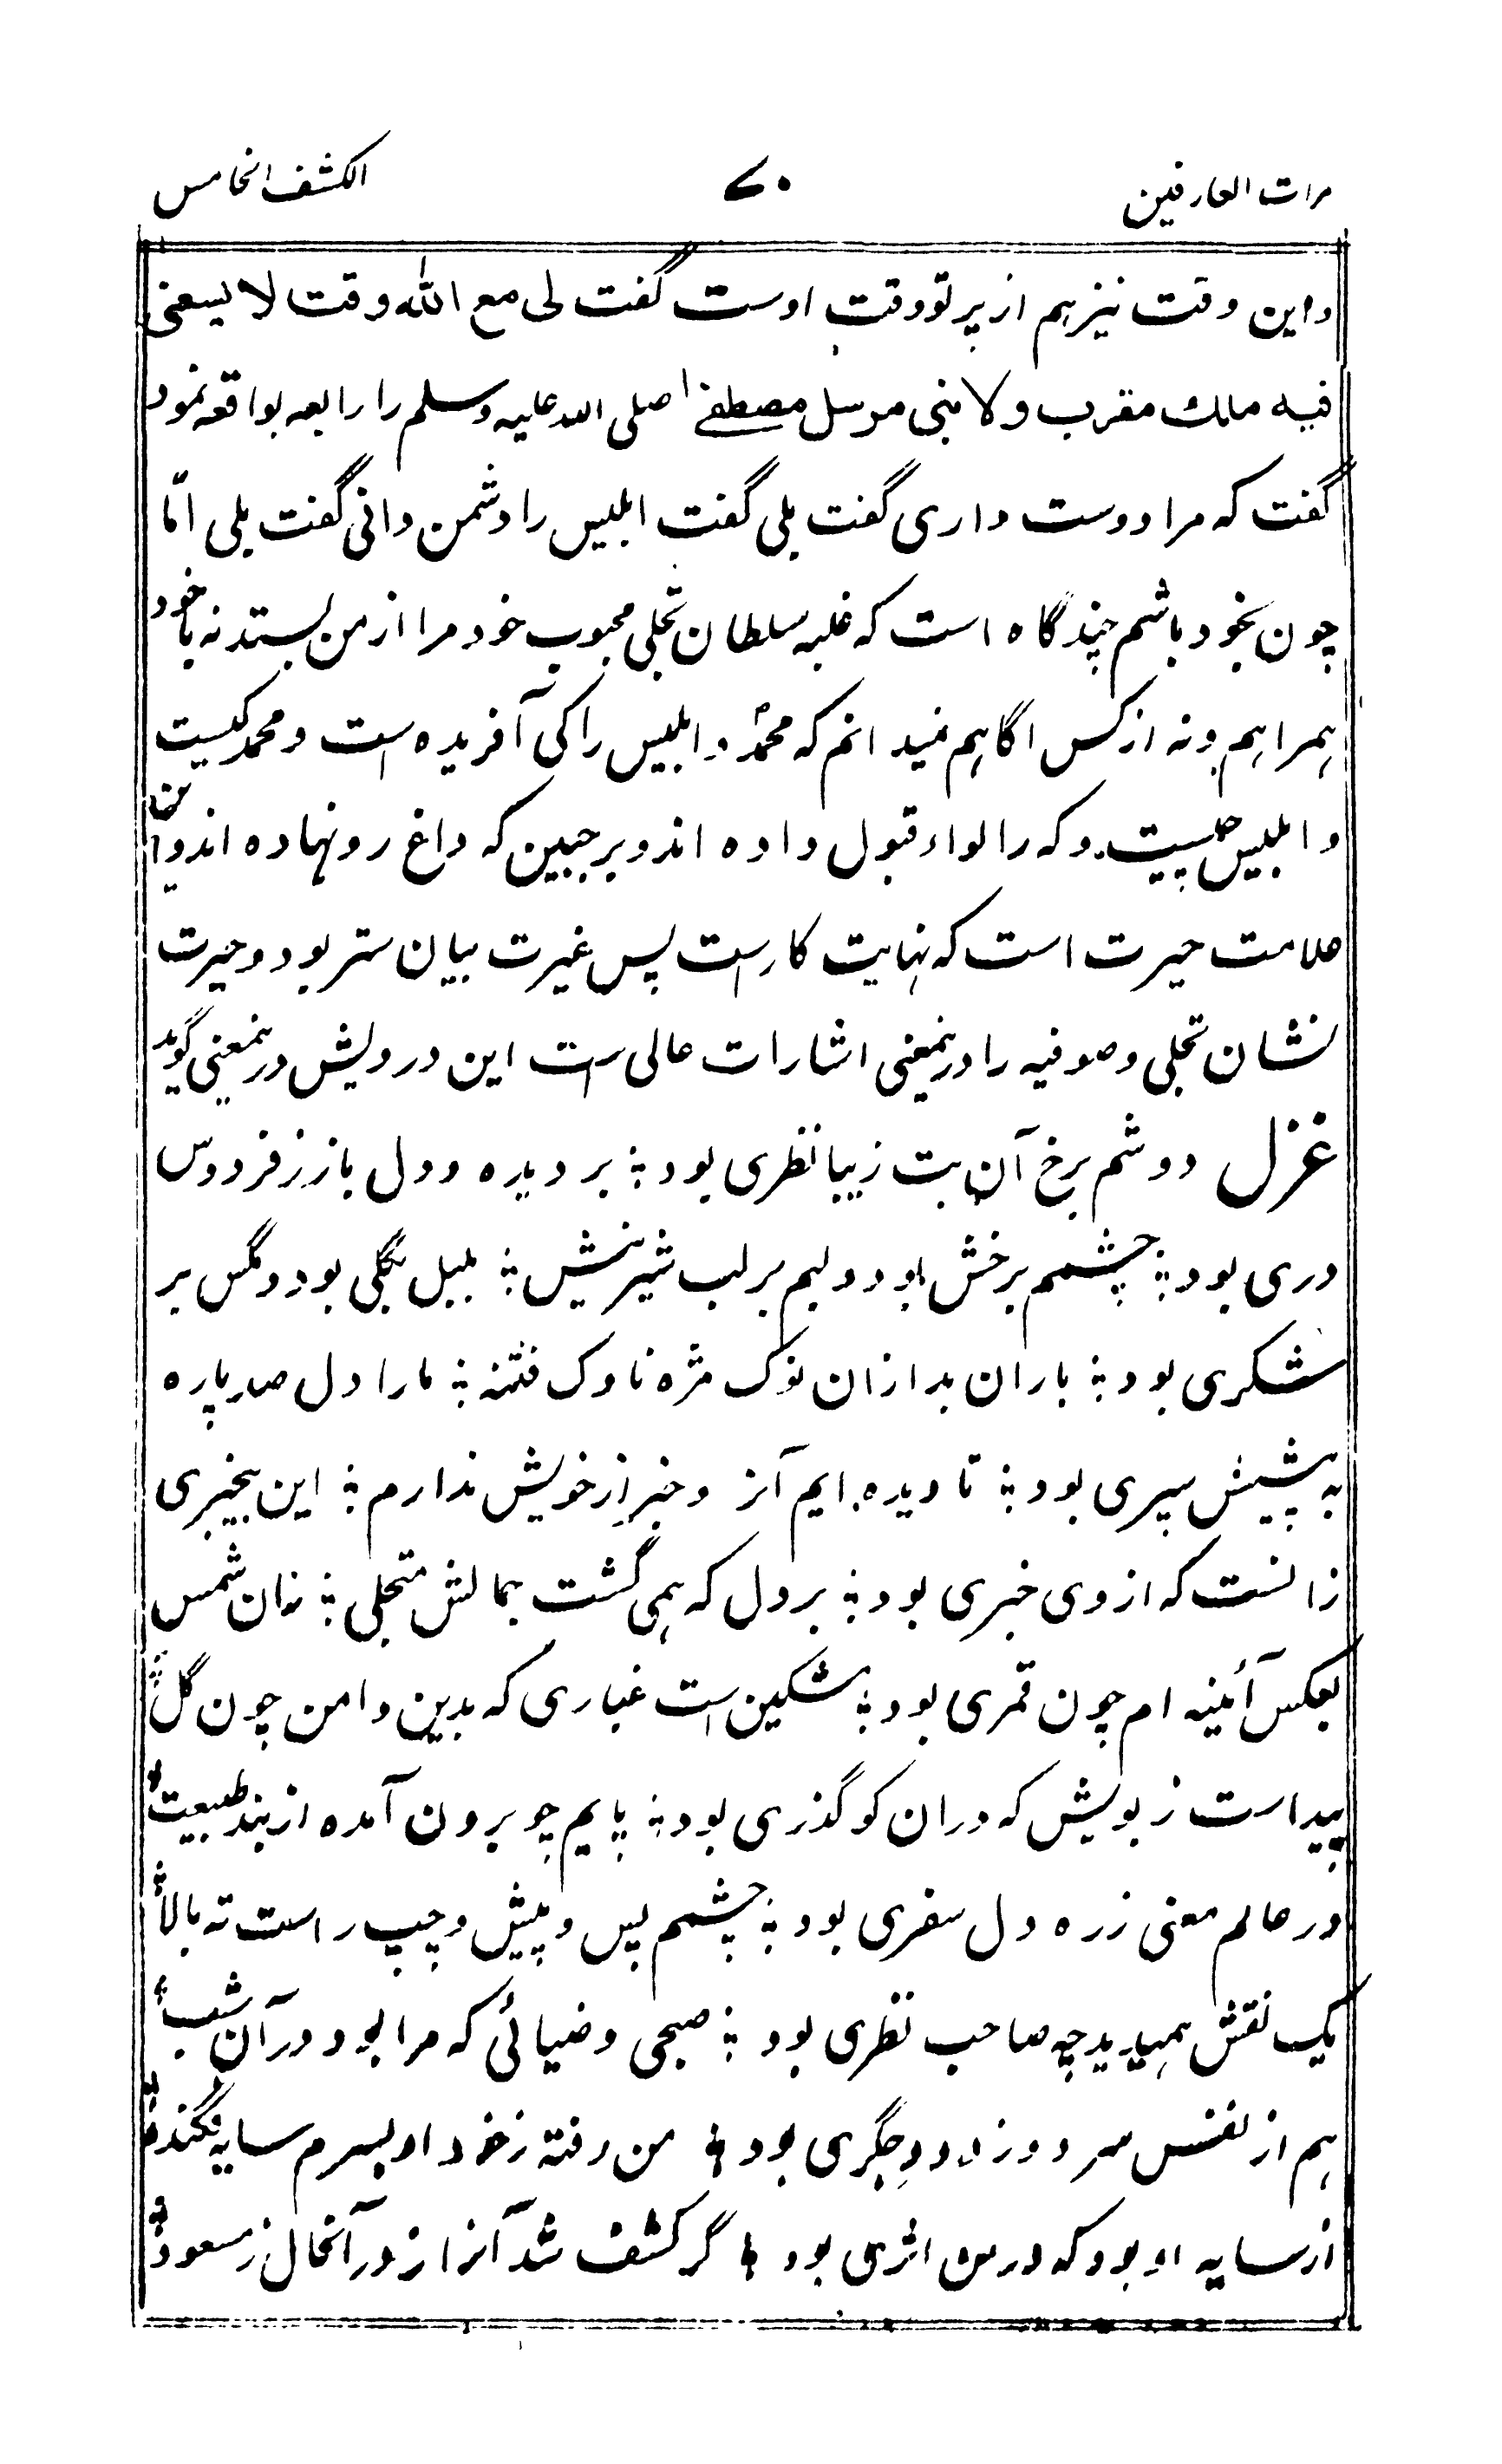 مرات العارفین ۷۰ الکشف الخامس
واین وقت نیز ہم از پرتو وقت اوست گفت لی مع الله وقت لا یسعنی
فیه ملك مقرب ولا نبی مرسل مصطفے صلی الله علیه وسلم را رابعه بواقعه نمود
گفت که مرا دوست داری گفت بلی گفت ابلیس را دشمن دانی گفت بلی امّا
چون بخود باشم چند گاه است که غلبه سلطان تجلی محبوب خود مرا از من بستد نه باخود
ہمراہم ونه از کس اگاہم نمیدانم که محمدؐ و ابلیس را کی آفریده است و محمد کیست
و ابلیس چیست وکه را لواء قبول داده اند و بر جبین که داغ رد نهاده اند و این
علامت حیرت است که نهایت کارست پس غیرت بیان ستر بود و حیرت
نشان تجلی وصوفیه را درینمعنی اشارات عالی ست این درویش درینمعنی گوید
غزل دوشم برخ آن بت زیبا نظری بود ؛ بر دیده و دل باز ز فردوس
دری بود ؛ چشمم برخش بود ولبم بر لب شیرینش ؛ بلبل بگلی بود ومگس بر
شکری بود ؛ باران بد ازان نوک مژه ناوک فتنه ؛ مارا دل صد پاره
به پیشش سپری بود ؛ تا دیده ایم آنر وخبر از خویش ندارم ؛ این بیخبری
زانست که از وی خبری بود ؛ بر دل که ہمی گشت جمالش متجلی ؛ زان شمس
بعکس آئینه ام چون قمری بود ؛ مشکین است غباری که بدین دامن چون گل ؛
پیداست ز بویش که دران کو گذری بود ؛ پایم چو برون آمده از بند طبیعت ؛
در عالم معنی ز ره دل سفری بود ؛ چشمم پس و پیش و چپ راست ته بالا ؛
یک نقش ہمیدید چه صاحب نظری بود ؛ صبحی وضیائی که مرا بود درآن شب ؛
ہم از نفس سرد وز دود جگری بود ؛ من رفته ز خود او بسرم سایه فگنده ؛
از سایه او بود که در من اثری بود ؛ گر کشف شد آنراز درآنحال ز مسعود ؛